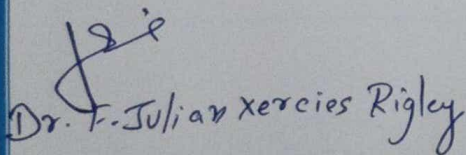 Dr. F. Julian Xercies Rigley